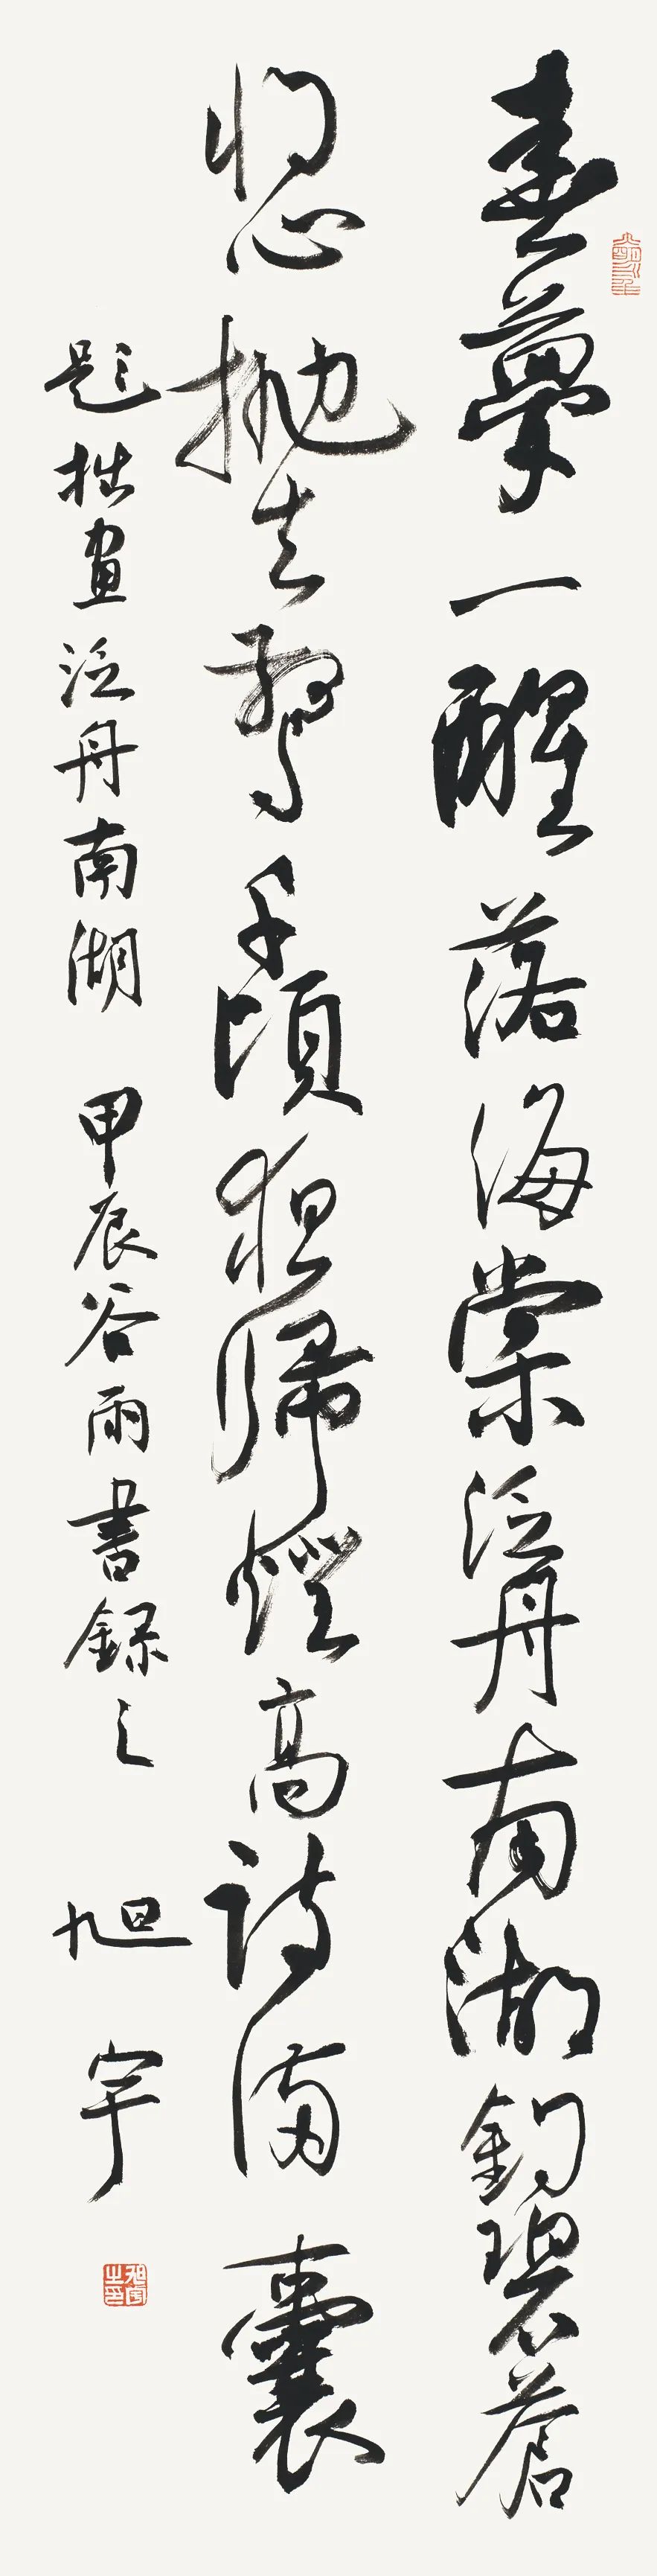 春夢一醒落海棠泛舟南湖釣碧蒼
将心拋去千頃歸燈高詩滿囊
題拙畫泛舟南湖 甲辰谷雨書録之 旭宇
旭宇之印